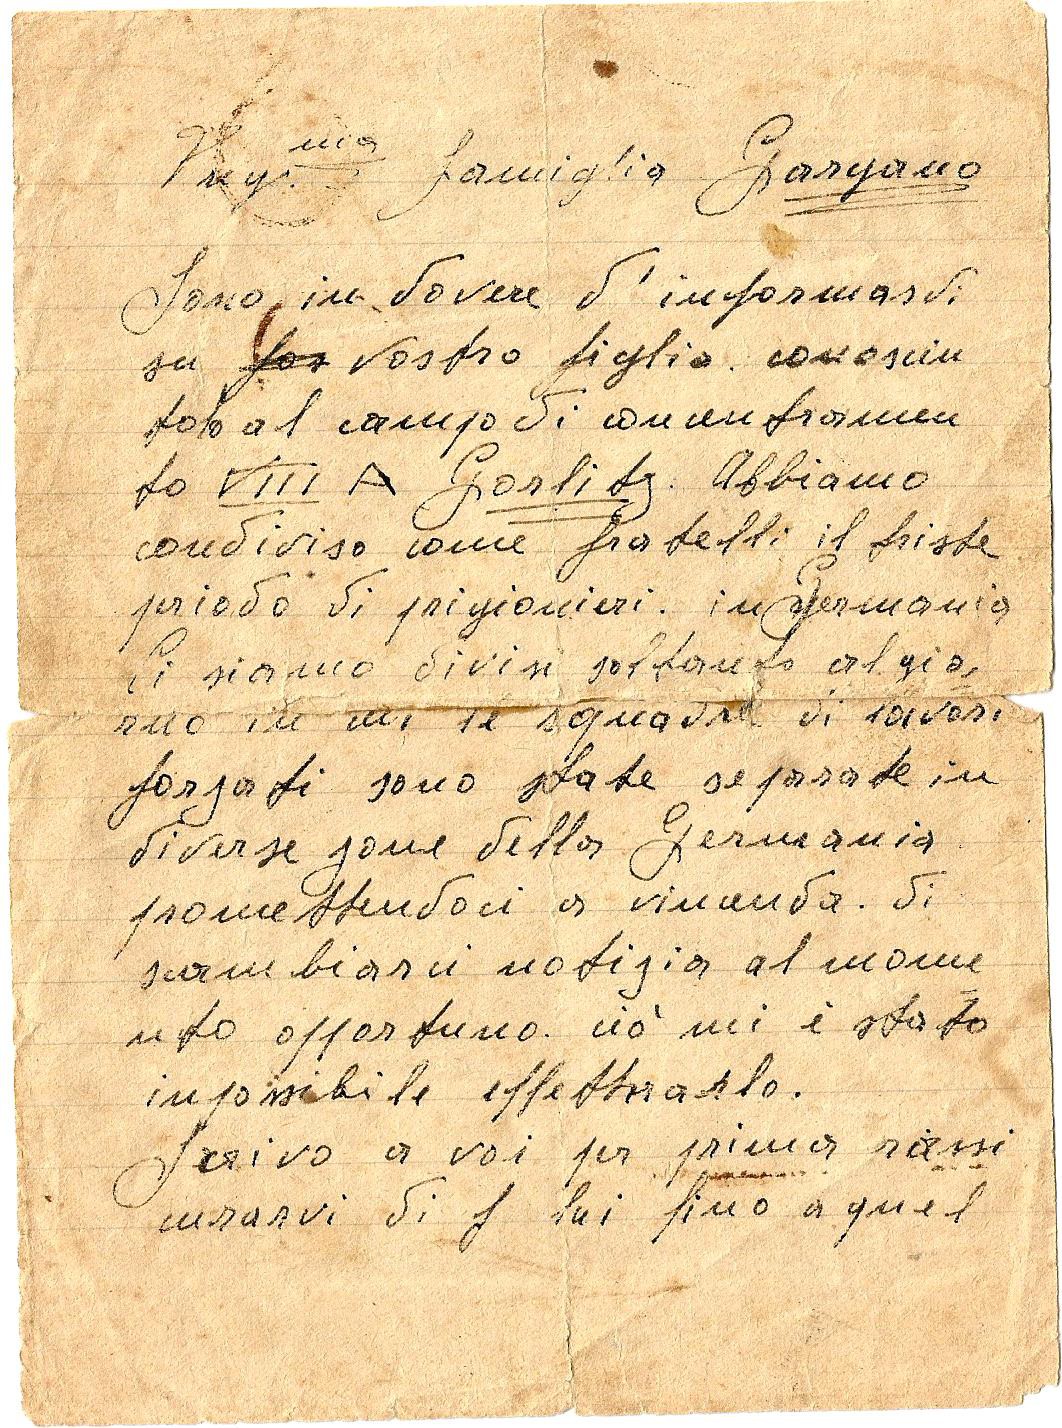 famiglia Gargano
Sono in dovere d'informardi
su for vostro figlio. conosciu
to al campo di concentramen
to VIII A Gorlitz. Abbiamo
condiviso come fratelli il triste
priodo di prigionieri. in Germania
Ci siamo divisi soltanto al gio,
rno in cui le squadre di lavori
forzati sono state separate in
diverse zone della Germania
promettendoci a vicenda. di
scambiarci notizia al mome
nto opportuno. ciò mi è stato
inpossibile effettuarlo.
Scrivo a voi per prima rassi
curarvi di f lui fino a quel